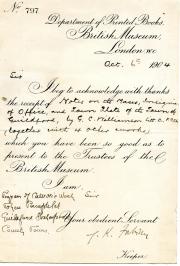 No 797
Department of Printed Books.
British Museum,
London WC
Oct. 6th 1904
Sir
I beg to acknowledge with thanks
the receipt of Notes on the Maces, Insignia
of Office, and Town Plate of the Town of
Guildford, by G. C. Williamson
together with 4 other works
which you have been so good as to
present to the Trustees of the
British Museum.
I am
Sir
Guildford
County
Your obedient Servant
Keeper